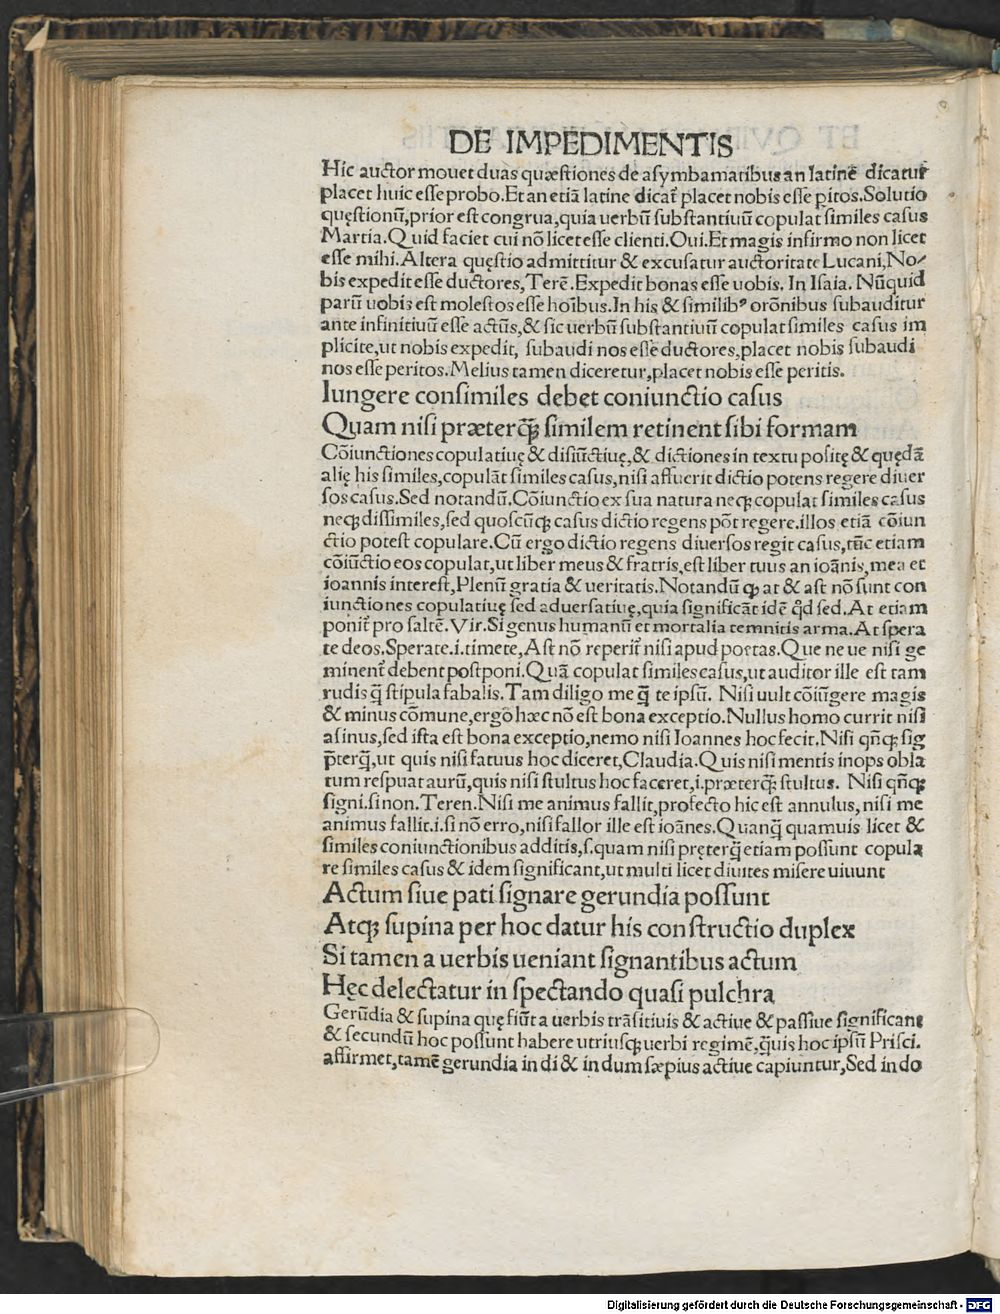 DE IMPEDIMENTIS
Hic auctor mouet duas quæstiones de asymbamatibus an latinē dicatur
placet huic esse probo. Et an etiā latine dicat̄ placet nobis esse pitos. Solutio
quęstionū, prior est congrua, quia uerbū substantiuū copulat similes casus
Martia. Quid faciet cui nō licet esse clienti. Oui. Et magis infirmo non licet
esse mihi. Altera quęstio admittitur & excusatur auctoritate Lucani, No/
bis expedit esse ductores, Terē. Expedit bonas esse uobis. In Isaia. Nūquid
parū uobis est molestos esse hoībus. In his & similibꝰ orōnibus subauditur
ante infinitiuū esse actūs, & sic uerbū substantiuū copulat similes casus im
plicite, ut nobis expedit, subaudi nos esse ductores, placet nobis subaudi
nos esse peritos. Melius tamen diceretur, placet nobis esse peritis.
Iungere consimiles debet coniunctio casus
Quam nisi præterq̄ꝫ similem retinent sibi formam
Cōiunctiones copulatiuę & disiūctiuę, & dictiones in textu positę & quędā
alię his similes, copulāt similes casus, nisi affuerit dictio potens regere diuer
sos casus. Sed notandū. Cōiunctio ex sua natura neqꝫ copulat similes casus
neqꝫ dissimiles, sed quoscūqꝫ casus dictio regens pōt regere. illos etiā cōiun
ctio potest copulare. Cū ergo dictio regens diuersos regit casus, tūc etiam
cōiūctio eos copulat, ut liber meus & fratris, est liber tuus an ioānis, mea et
ioannis interest, Plenū gratia & ueritatis. Notandū ꝙ at & ast nō sunt con
iunctiones copulatiuę sed aduersatiuę, quia significāt idē qd̄ sed. At etiam
ponit̄ pro saltē. Vir. Si genus humanū et mortalia temnitis arma. At spera
te deos. Sperate .i. timete, Ast nō reperit̄ nisi apud poetas. Que ne ue nisi ge
minent̄ debent postponi. Quā copulat similes casus, ut auditor ille est tam
rudis q̄ stipula fabalis. Tam diligo me q̄ te ipsū. Nisi uult cōiūgere magis
& minus cōmune, ergo hæc nō est bona exceptio. Nullus homo currit nisi
asinus, sed ista est bona exceptio, nemo nisi Ioannes hoc fecit. Nisi qn̄qꝫ sig
p̄terq̄, ut quis nisi fatuus hoc diceret, Claudia. Quis nisi mentis inops obla
tum respuat aurū, quis nisi stultus hoc faceret, i. præterq̄ꝫ stultus. Nisi qn̄qꝫ
signi. si non. Teren. Nisi me animus fallit, profecto hic est annulus, nisi me
animus fallit .i. si nō erro, nisi fallor ille est ioānes. Quanq̄ quamuis licet &
similes coniunctionibus additis, s. quam nisi pręterq̄ etiam possunt copula
re similes casus & idem significant, ut multi licet diuites misere uiuunt
Actum siue pati signare gerundia possunt
Atqꝫ supina per hoc datur his constructio duplex
Si tamen a uerbis ueniant signantibus actum
Hęc delectatur in spectando quasi pulchra
Gerūdia & supina quę fiūt a uerbis trāsitiuis & actiue & passiue significant
& secundū hoc possunt habere utriusqꝫ uerbi regimē, q̄uis hoc ipsū Prisci.
affirmet, tamē gerundia in di & in dum sæpius actiue capiuntur, Sed in do
Digitalisierung gefördert durch die Deutsche Forschungsgemeinschaft - DFG